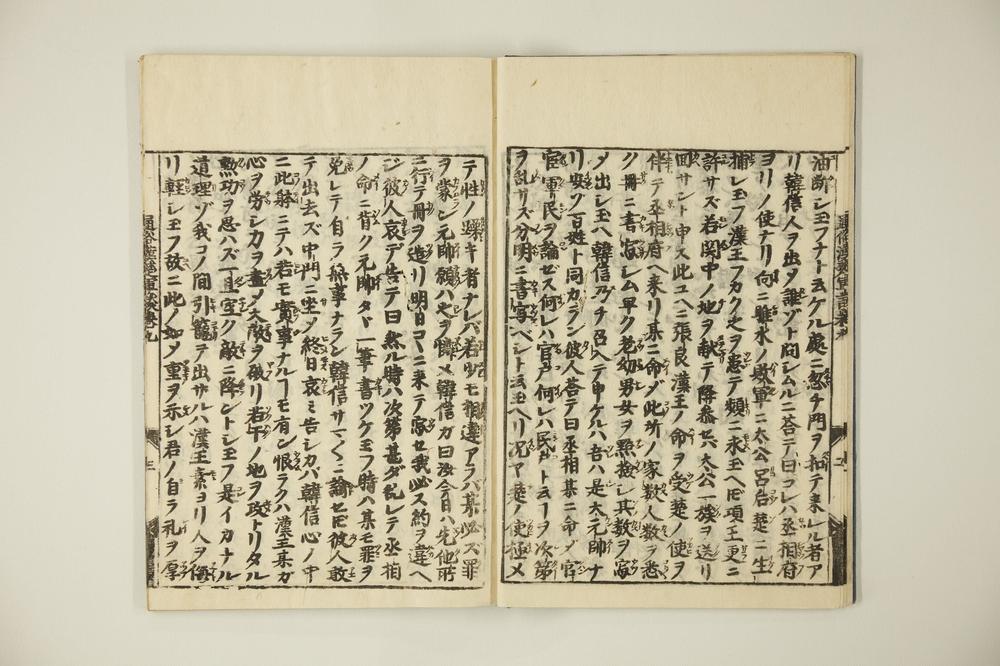 油断シ玉フナト云ケル處ニ忽チ門ヲ扣テ来レル者ア
リ韓信人ヲ出ヲ誰ゾト問シムルニ荅テ曰コレハ丞相府
ヨリノ使ナリ向ニ睢水ノ敗軍ニ太公呂后楚ニ生
捕レ玉フ漢王フカク之ヲ患テ頻ニ求玉ヘ𪜈項王更ニ
許サズ若関中ノ地ヲ献テ降参セバ太公一族ヲ送リ
回サント申ス此ユヘニ張良漢王ノ命ヲ受楚ノ使ヲ
伴テ丞相府ヘ来リ某ニ命ゾ此所ノ家数人数ヲ悉
ク冊ニ書寫シム早ク老幼男女ヲ點檢シ其数ヲ寫
メ出シ玉ヘ韓信乃チ召入テ申ケルハ吾ハ是大元帥ナ
リ安ゾ百姓ト同カラン彼人荅テ曰丞相某ニ命ゾ官
官軍民ヲ論セズ何レハ官戸何レハ民戸ト云ヲ次第
ヲ乱サズ分明ニ書寫ベシト云玉ヘリ况ヤ楚ノ使極メ
テ性ノ躁キ者ナレバ若少モ相違アラバ某必ズ罪
ヲ蒙ン元帥願ハ之ヲ憐メ韓信ガ曰汝今日ハ先他所
ニ行テ冊ヲ造リ明日コヽニ来テ寫セ我必ズ約ヲ違ヘ
ジ彼人哀テ告テ曰然ル時ハ次第甚ダ乱レテ丞相
ノ命ニ背ク元帥タヾ一筆書ツケ玉フ時ハ某モ罪ヲ
免レテ自ラ無事ナラン韓信サマ〲ニ論セ𪜈彼人敢
テ出去ズ中門ニ坐メ終日哀ミ告シカバ韓信心ノ中
ニ此躰ニテハ若モ實事ナルヿモ有ン恨ラクハ漢王某ガ
心ヲ労シカヲ盡メ大敵ヲ破リ若干ノ地ヲ攻トリタル
勲功ヲ思ハズ一旦空ク敵ニ降ントシ玉フ是イカナル
道理ゾ我コノ間引籠テ出サルハ漢王素ヨリ人ヲ侮
リ軽シ玉フ故ニ此ノ如メ重ヲ示シ君ノ自ラ礼ヲ厚